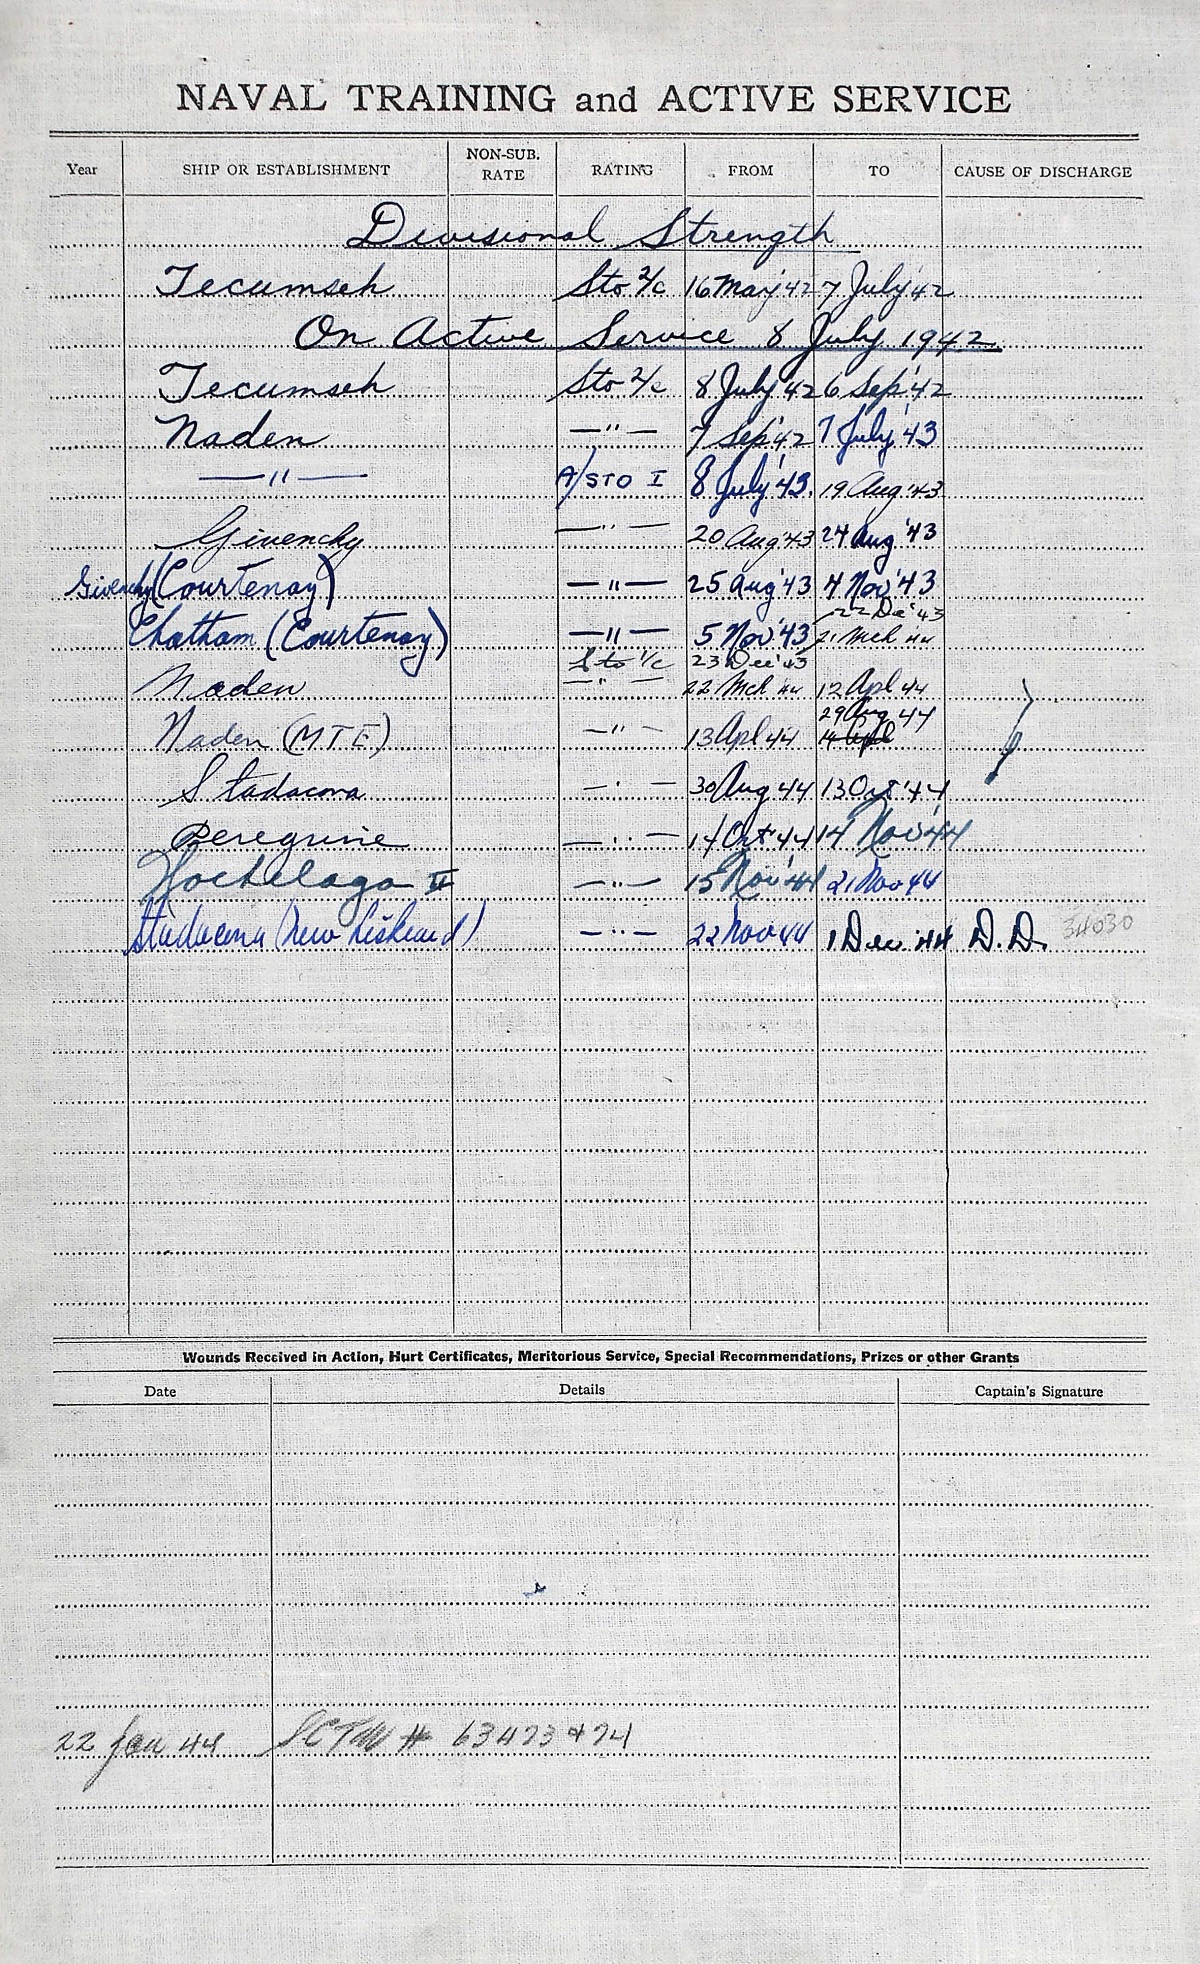 NAVAL TRAINING and ACTIVE SERVICE
Year SHIP OR ESTABLISHMENT NON-SUB. RATE RATING FROM TO CAUSE OF DISCHARGE
Divisional Strength
Tecumseh Sto 2/c 16 May '42 7 July '42
On Active Service 8 July 1942
Tecumseh Sto 2/c 8 July '42 6 Sep '42
Naden —"— 7 Sep '42 7 July '43
—"— A/STO I 8 July '43. 19 Aug '43
Givenchy —"— 20 Aug '43 24 Aug '43
Givenchy (Courtenay) —"— 25 Aug '43 4 Nov '43
22 Dec '43
Chatham (Courtenay) —"— 5 Nov '43 21 Mch 44
Sto 1/c 23 Dec '43
Naden —"— 22 Mch 44 12 Apl 44
29 Aug 44
Naden (MTE) —"— 13 Apl 44 14 Apl
Stadacona —"— 30 Aug 44 13 Oct '44
Peregrine —"— 14 Oct '44 14 Nov '44
Hochelaga II —"— 15 Nov '44 21 Nov 44
Stadacona (New Liskeard) —"— 22 Nov 44 1 Dec '44 D.D. 34030
Wounds Received in Action, Hurt Certificates, Meritorious Service, Special Recommendations, Prizes or other Grants
Date Details Captain's Signature
22 Jan 44 # 63473 + 74